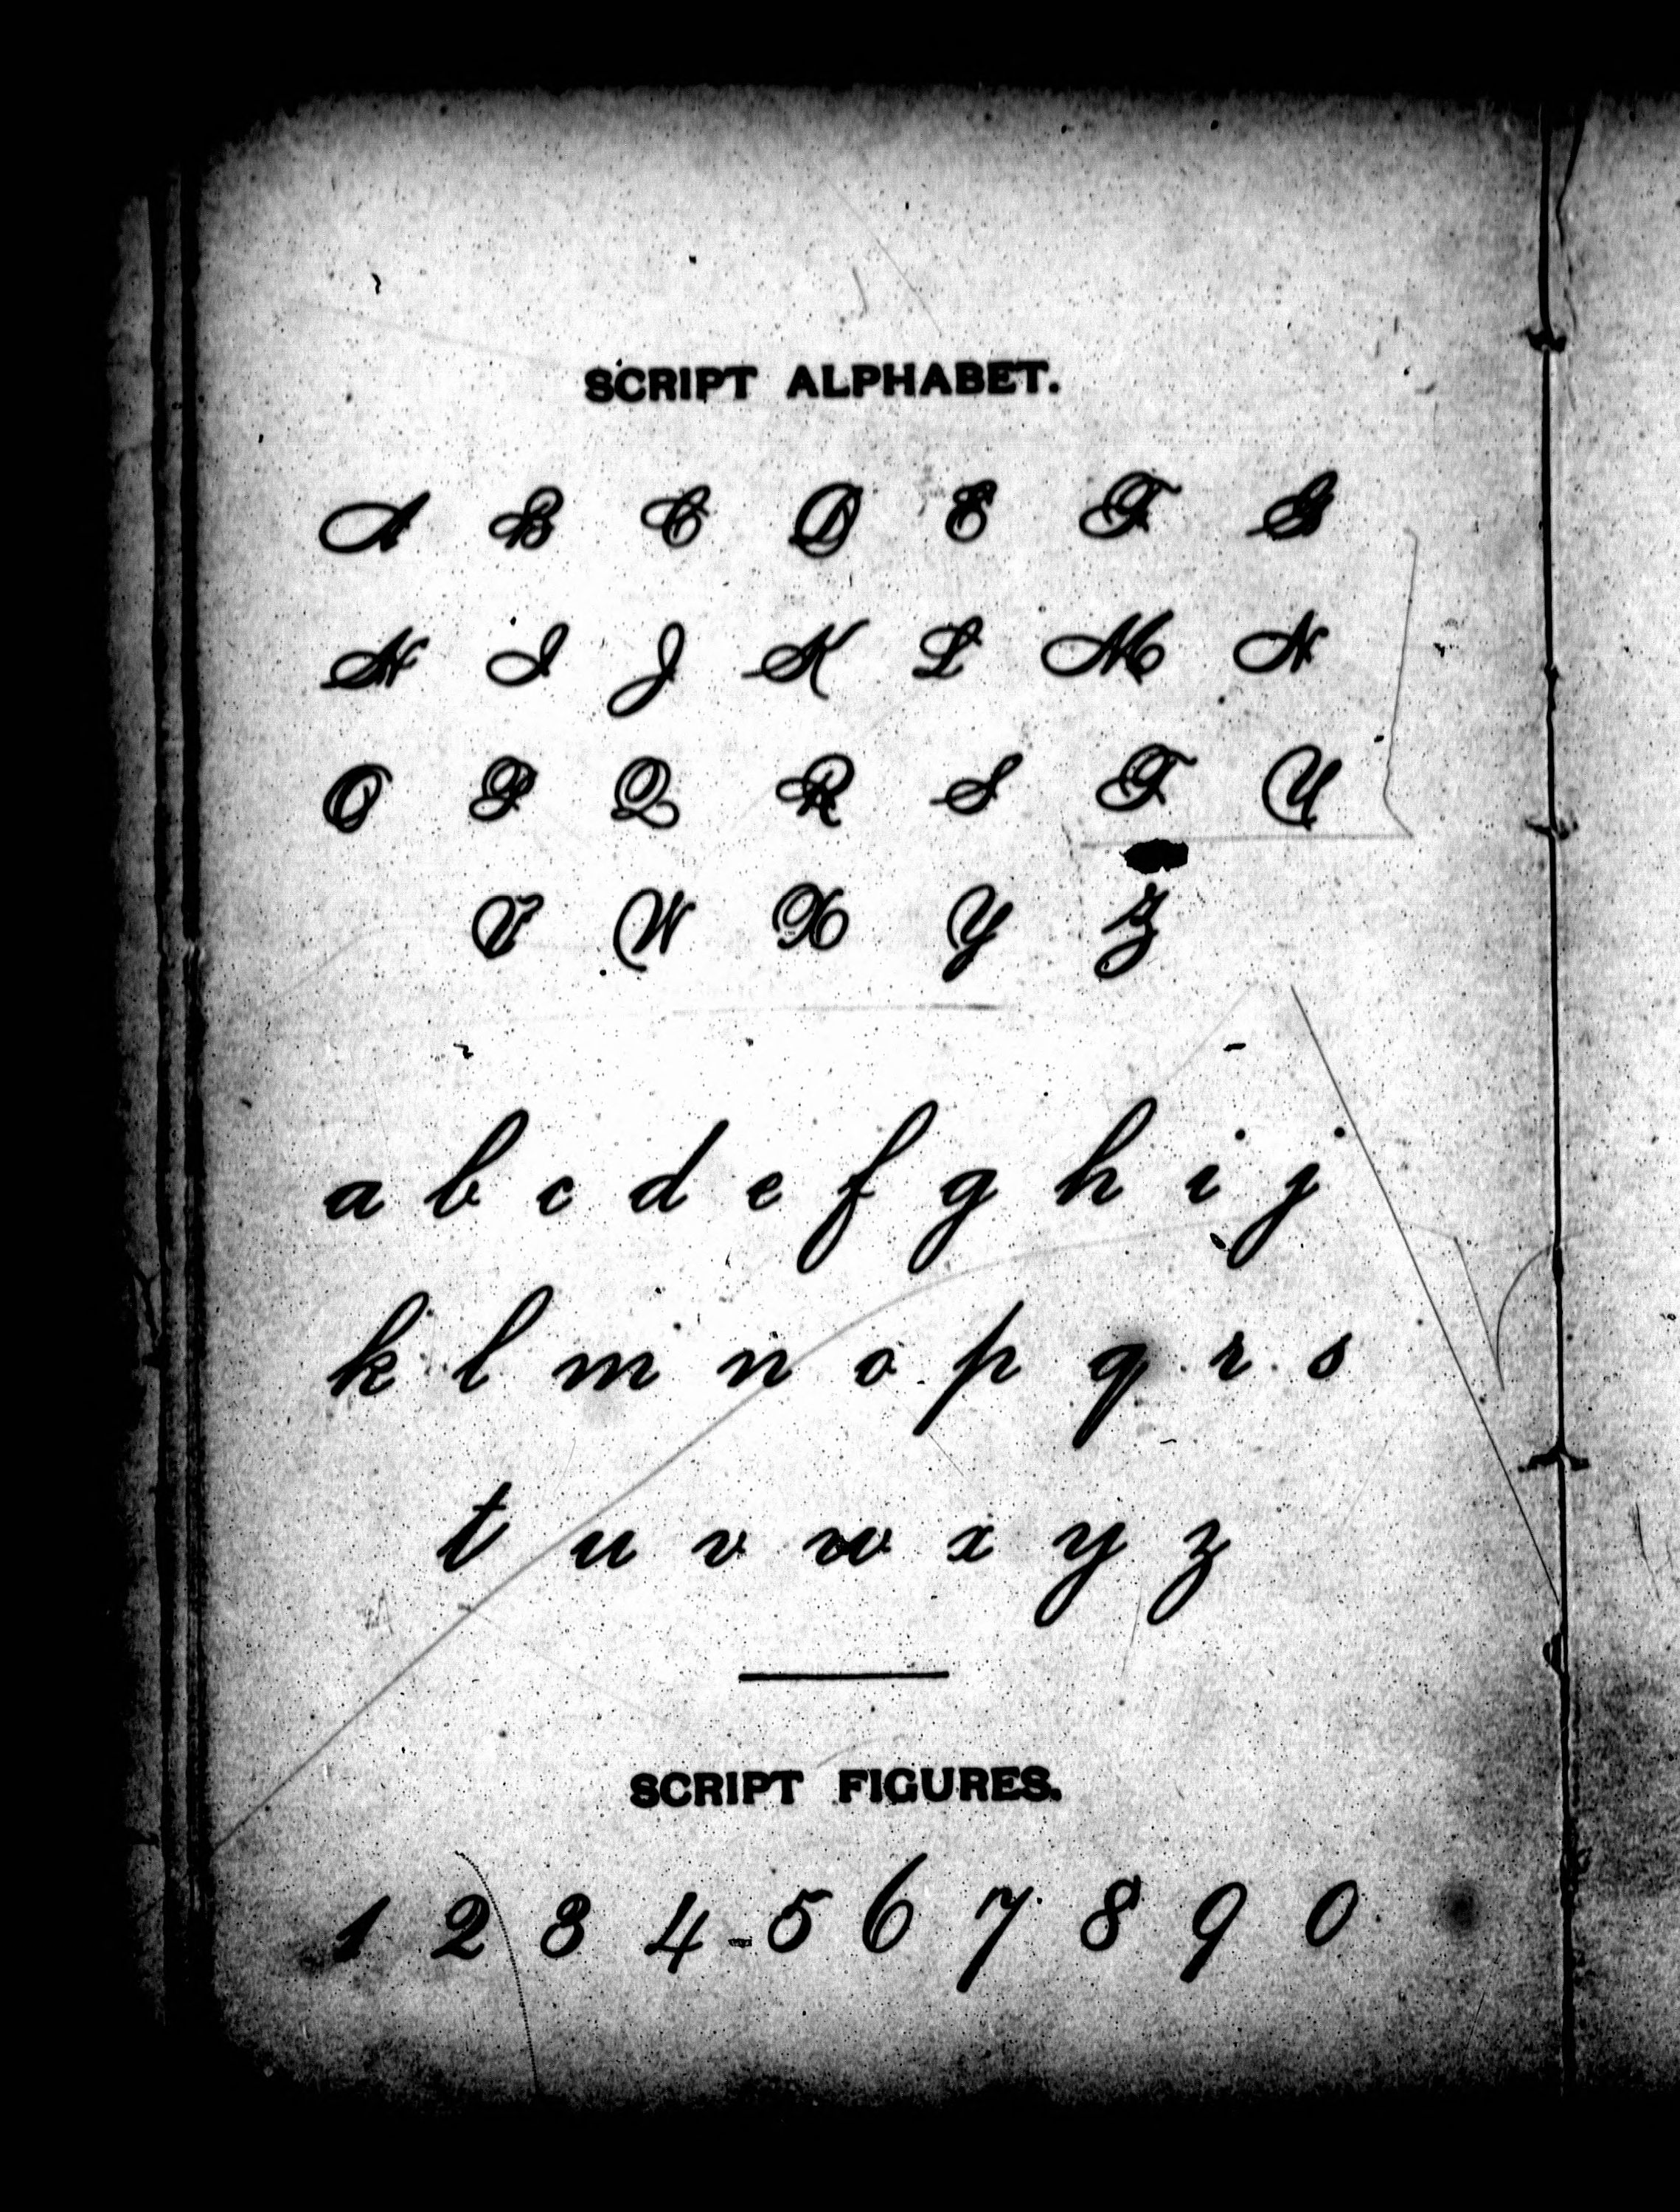 SCRIPT ALPHABET.
A B C D E F G
H I J K L M N
O P Q R S T U
V W X Y Z
a b c d e f g h i j
k l m n o p q r s
t u v w x y z
SCRIPT FIGURES.
1 2 3 4 5 6 7 8 9 0